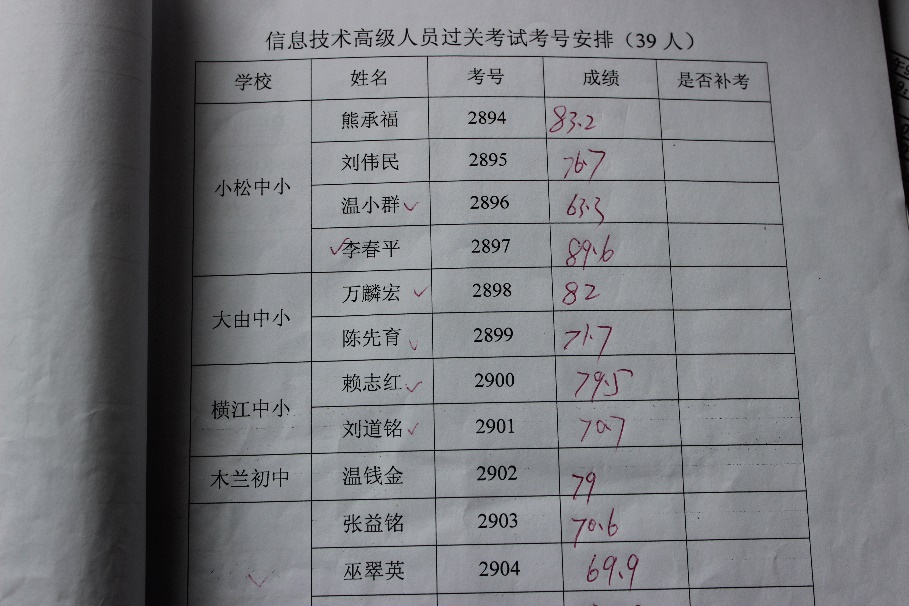 信息技术高级人员过关考试考号安排（39人）
学校 姓名 考号 成绩 是否补考
小松中小 熊承福 2894 83.2
刘伟民 2895 76.7
温小群 2896 63.3
李春平 2897 89.6
大由中小 万麟宏 2898 82
陈先育 2899 71.7
横江中小 赖志红 2900 79.5
刘道铭 2901 70.7
木兰初中 温钱金 2902 79
张益铭 2903 70.6
巫翠英 2904 69.9